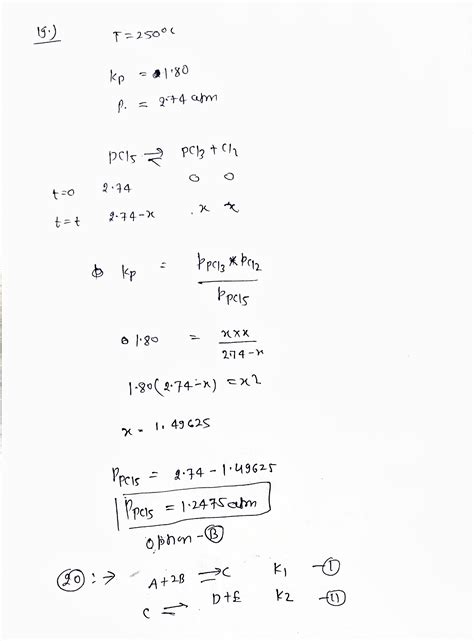 19.)
T = 250°C
Kp = 1.80
P. = 2.74 atm
PCl5 ⇌ PCl3 + Cl2
t=0 2.74 0 0
t=t 2.74-x x x
Kp = pPCl3 * pCl2 / pPCl5
1.80 = x×x / 2.74-x
1.80(2.74-x) = x2
x = 1.49625
PPCl5 = 2.74 - 1.49625
PPCl5 = 1.2475 atm
option - B
20 :→ A+2B ⇌ C K1 - I
C ⇌ D+E K2 - II